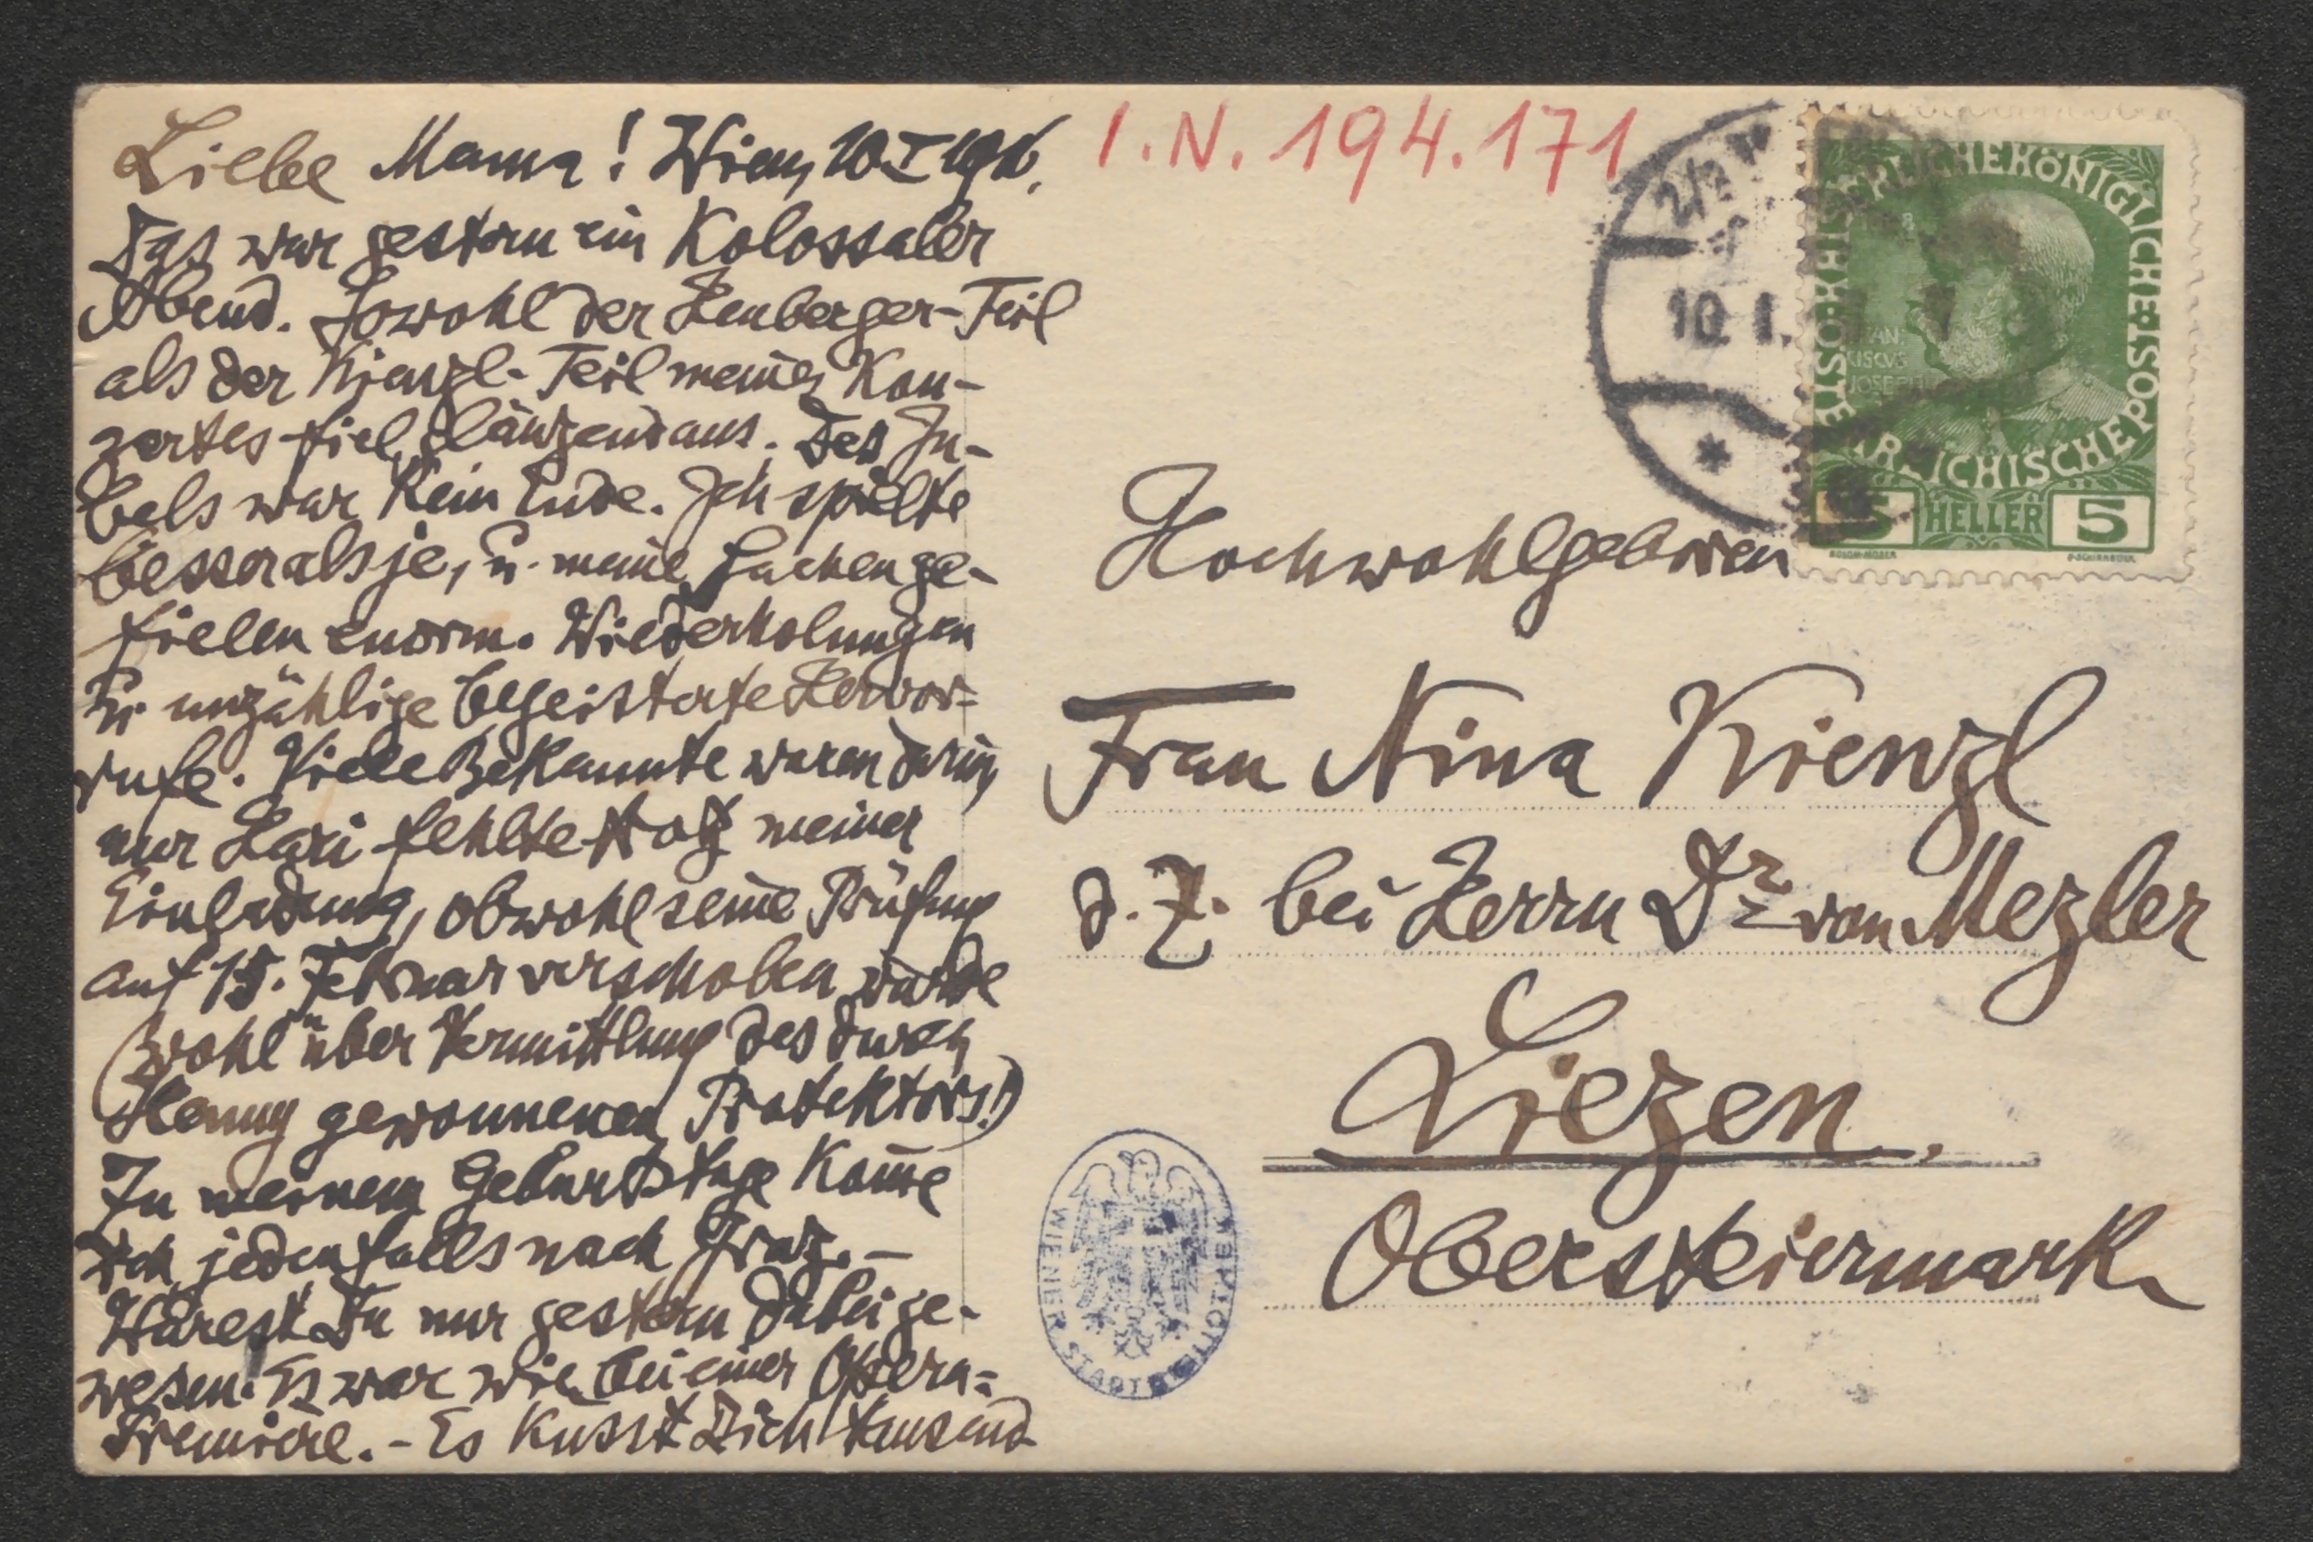 Liebe Mama! Wien, 10 I
Das war gestern ein Kolossaler
Abend. Sowohl der Heuberger-Teil
als der Kienzl-Teil meines Kon-
zertes fiel glänzend aus. Des Ju-
bels war Kein Ende. Ich spielte
besser als je, u. meine Sachen ge-
fielen enorm. Wiederholungen
u. unzählige begeisterte Hervor-
rufe. Viele Bekannte waren darin,
nur Lari fehlte trotz meiner
Einladung, obwohl seine Prüfung
auf 15. Februar verschoben wurde
(wohl über Vermittlung des durch
Henny gewonnenen Protektors!)
Zu meinem Geburtstage Kom̄e
ich jedenfalls nach Graz. –
Wärest Du nur gestern dabei ge-
wesen! Es war wie bei einer Opern-
Premiere. – Es Küsst Dich tausend
I.N. 194.171
10. I.
KAISERLICHEKÖNIGLICHE POST
ÖSTERREICHISCHE
FRAN
CISCVS
JOSEPH I
5 HELLER 5
KOLOM·MOSER
F·SCHIRNBÖCK
Hochwohlgeboren
Frau Nina Kienzl
d. Z. bei Herrn Dr von Mezler
Liezen,
Obersteiermark
WIENER STADTBIBLIOTHEK